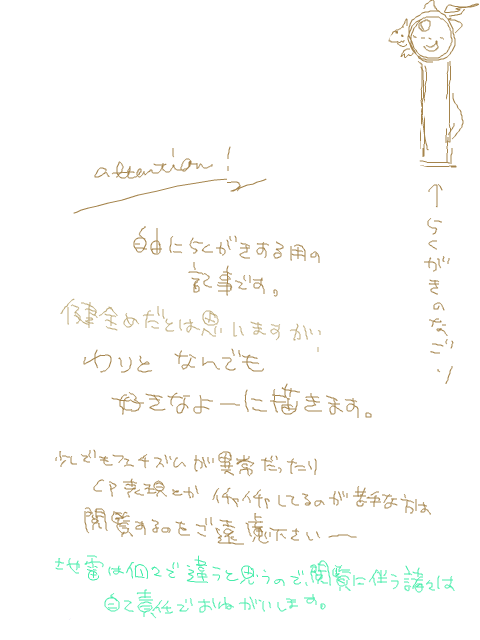 attention!
自由にらくがきする用の
記事です。
健全めだとは思いますが、
わりと なんでも
好きなよーに描きます。
少しでもフェチズムが異常だったり
CP表現とか イチャイチャしてるのが苦手な方は
閲覧するのをご遠慮下さいー
地雷は個々で違うと思うので、閲覧に伴う諸々は
自己責任でおねがいします。
↑らくがきのなごり